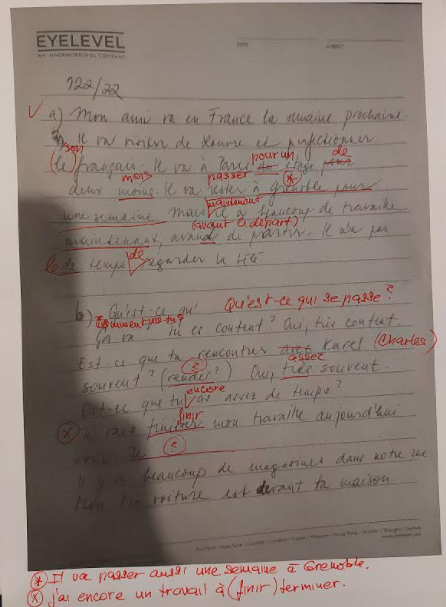 EYELEVEL
AN HINDERWORKING COMPANY
DATE
SUBJECT
122/22
a) Mon ami va en France la semaine prochaine.
Il va visiter de Louvre et perfectionner
son
(le) français. Il va à Paris pour un stage de
mois passer *
deux mouns. Il va rester à Grenoble pour
maintenant
une semaine. Mais il a beaucoup de travaille
(avant le départ)
maintenant, avand de partir. Il n'a pas
le de temps de regarder la télé
b) Qu'est-ce qui Qu'est-ce qui se passe?
Comment vas-tu?
Ça va tu es content? Oui, très content.
Est-ce que tu rencontres avec Karel (Charles)
? assez
souvent? (rendez?) Oui, très souvent.
encore
Est-ce que tu as assez de temps?
finir
* finisser mon travaille aujourd'hui
?
Il y a beaucoup de magasines dans notre rue
voiture est devant ta maison.
* Il va passer aussi une semaine à Grenoble.
* j'ai encore un travail à (finir) terminer.